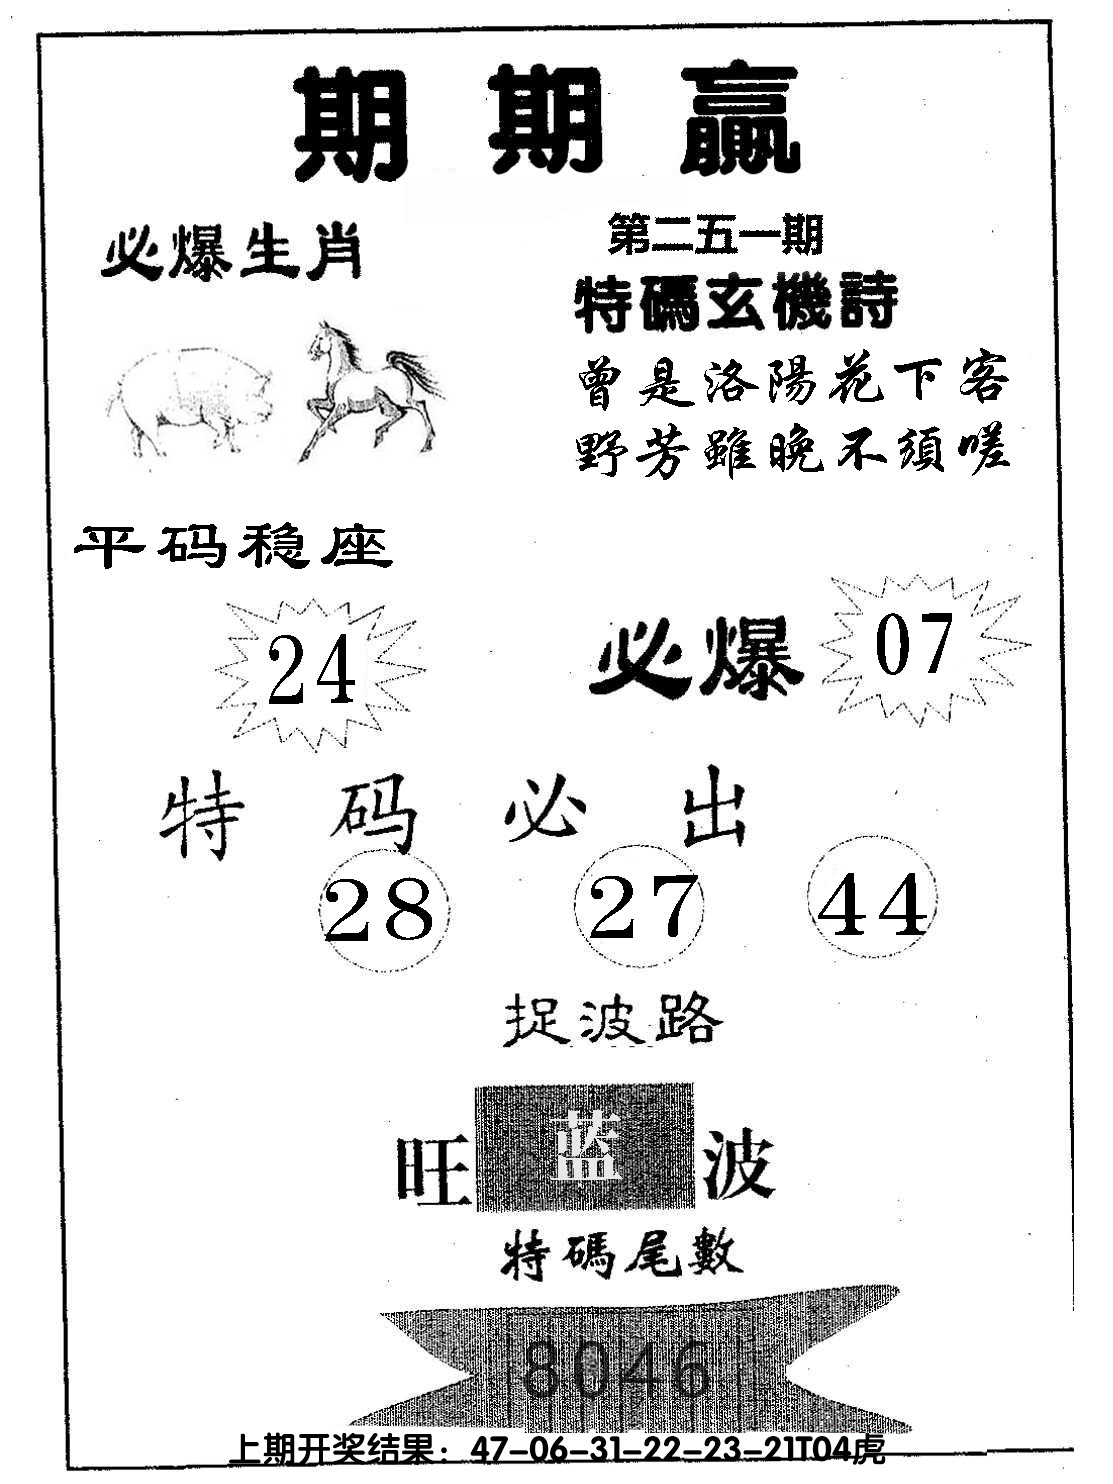 期期赢
必爆生肖
第二五一期
特碼玄機詩
曾是洛陽花下客
野芳雖晚不須嗟
平码稳座
24
必爆 07
特码必出
28 27 44
捉波路
旺 蓝 波
特碼尾數
8046
上期开奖结果：47-06-31-22-23-21T04虎